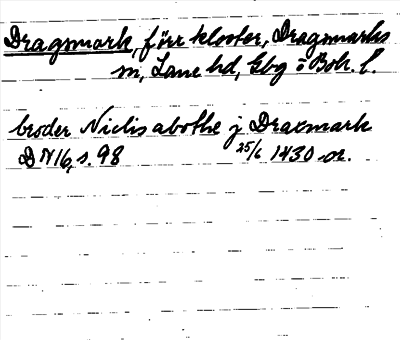 Dragsmark, förr kloster, Dragsmarks
sn, Lane hd, Gbg o Boh. l.
broder Niclis abothe j Draxmark
DN 16, s. 98 25/6 1430 or.